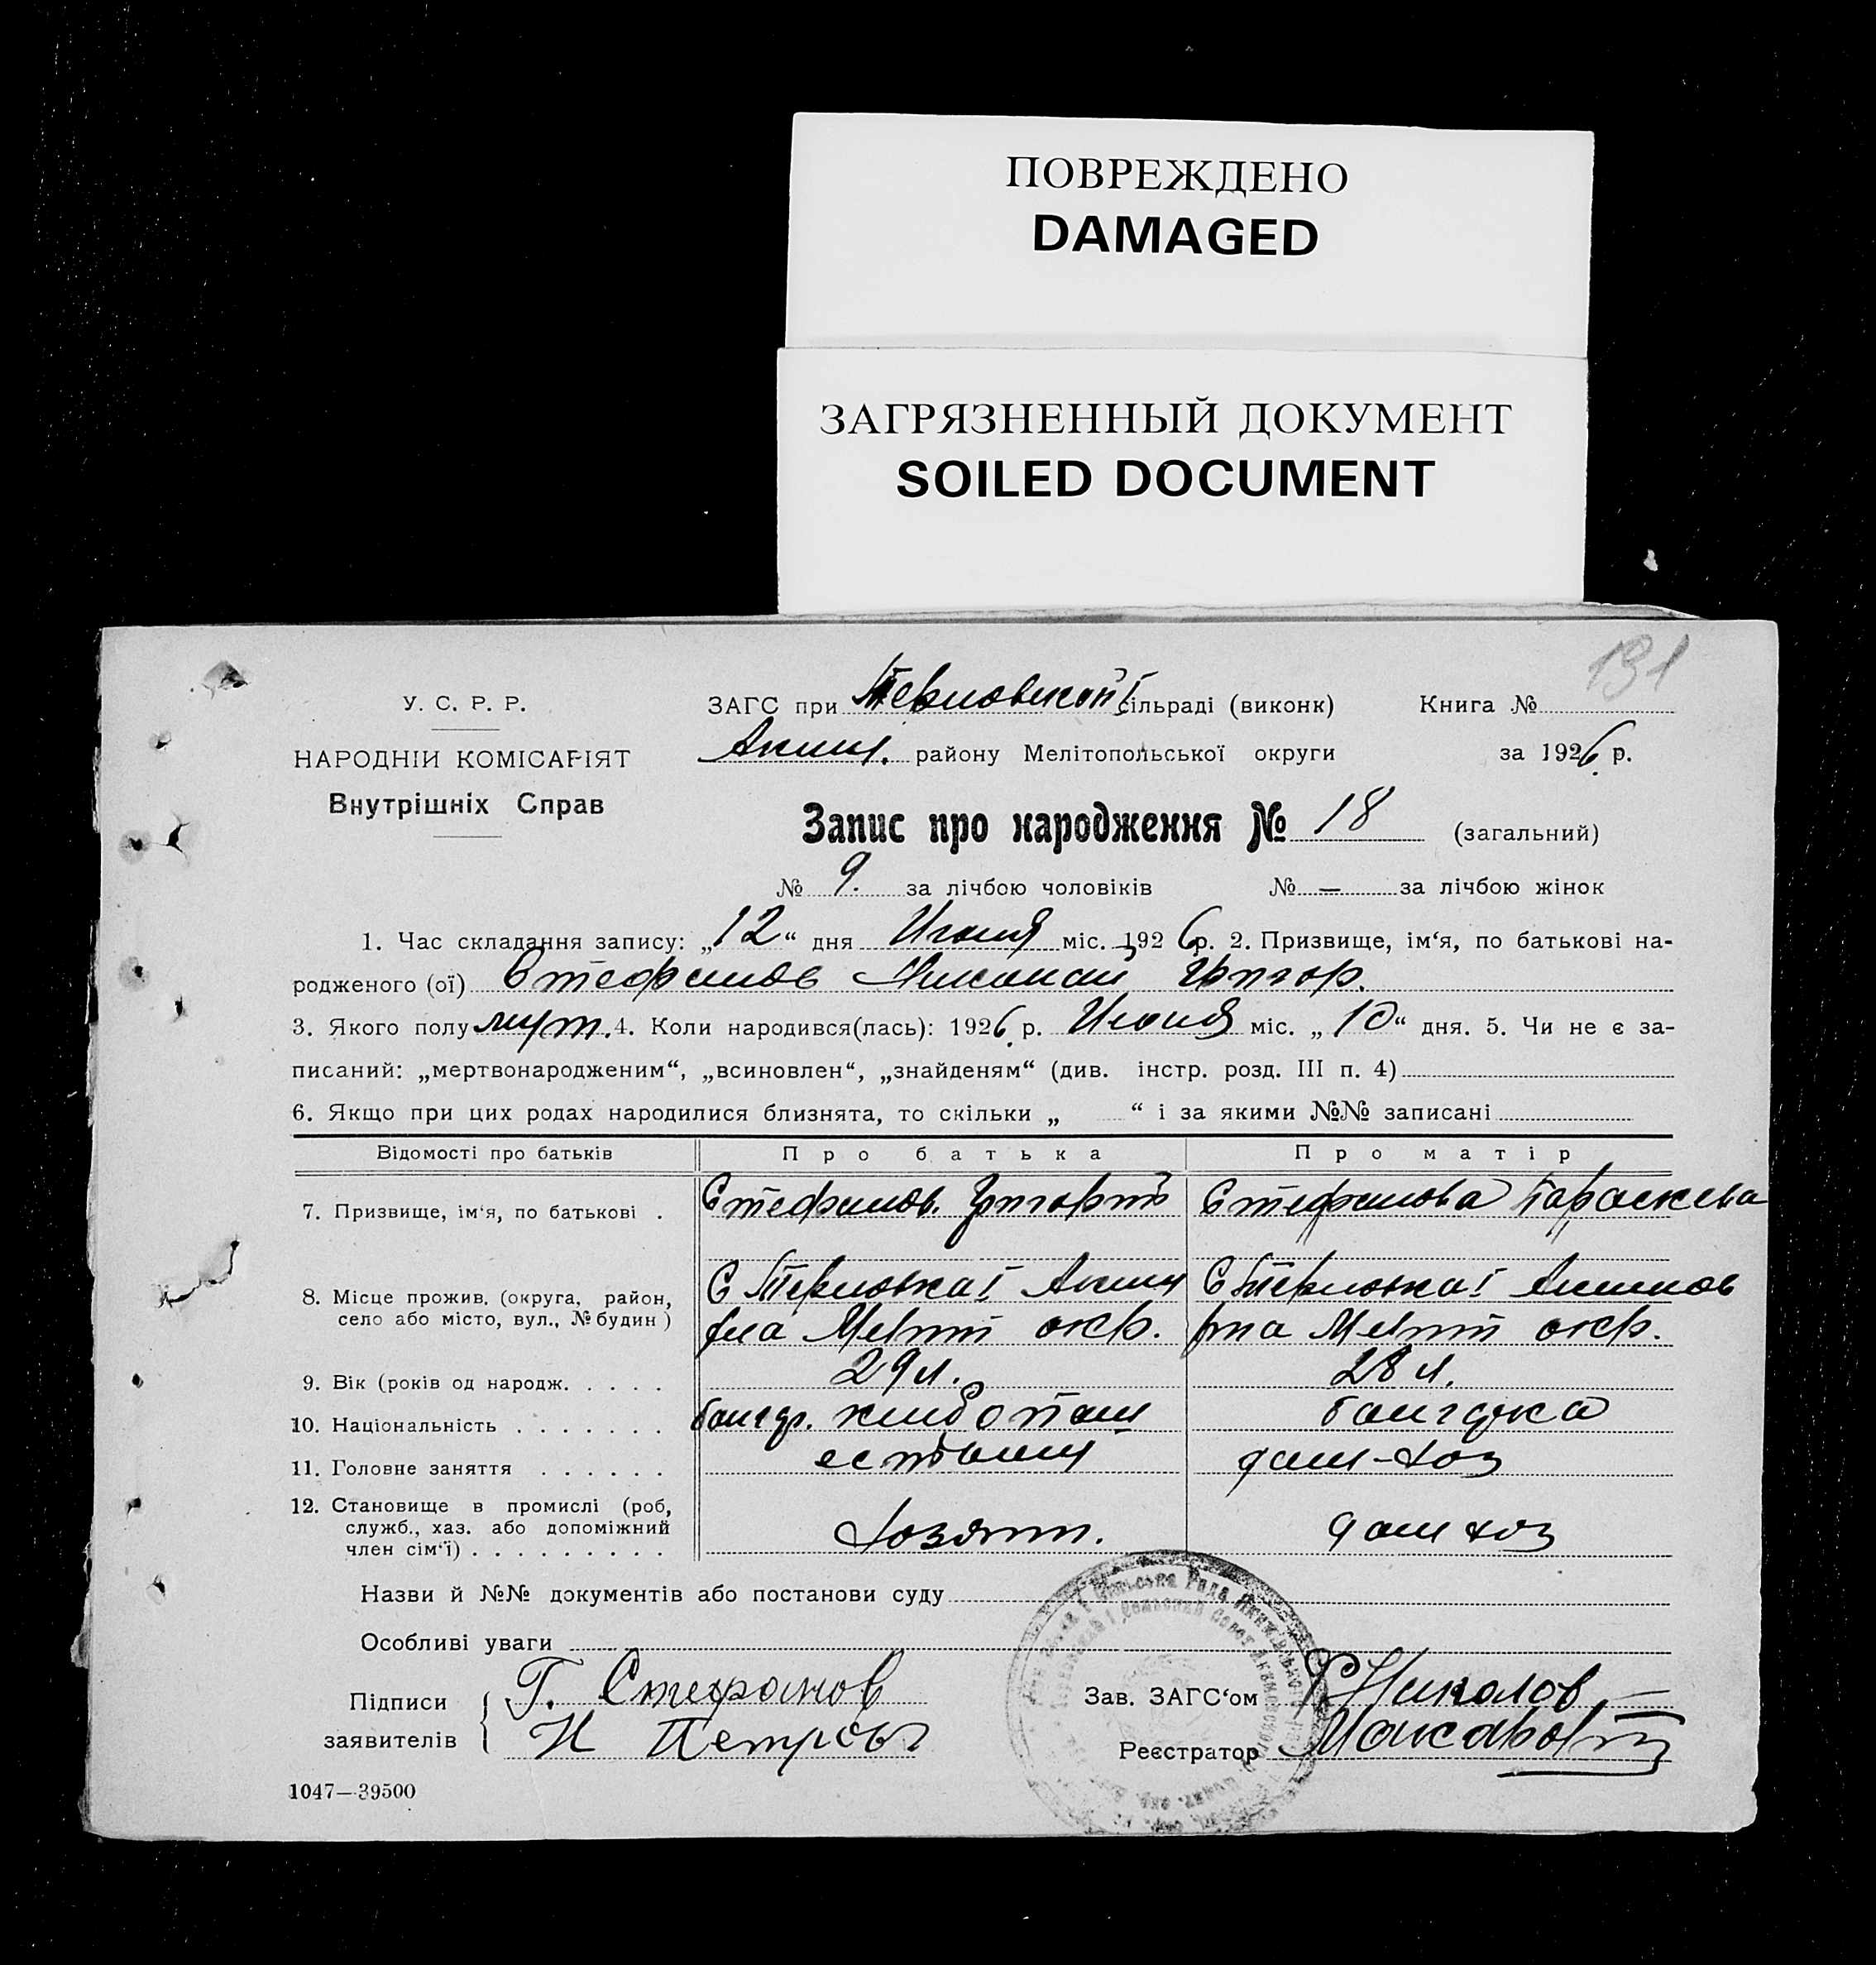 ПОВРЕЖДЕНО
DAMAGED
ЗАГРЯЗНЕННЫЙ ДОКУМЕНТ
SOILED DOCUMENT
191
У. С. Р. Р.
НАРОДНІЙ КОМІСАРІЯТ
Внутрішніх Справ
ЗАГС при Терновской I сільраді (виконк) Книга №
Аким. району Мелітопольської округи за 1926 р.
Запис про народження № 18 (загальний)
№ 9. за лічбою чоловіків № — за лічбою жінок
1. Час складання запису: „12“ дня Июня міс. 1926 р. 2. Призвище, ім‘я, по батькові на-
родженого (ої) Стефанов Николай Григор.
3. Якого полу муж. 4. Коли народився(лась): 1926 р. Июня міс. „10“ дня. 5. Чи не є за-
писаний: „мертвонародженим“, „всиновлен“, „знайденям“ (див. інстр. розд. III п. 4)
6. Якщо при цих родах народилися близнята, то скільки „ “ і за якими №№ записані
Відомості про батьків Про батька Про матір
7. Призвище, ім‘я, по батькові . Стефанов Григорий Стефанова Параскева
8. Місце прожив. (округа, район, село або місто, вул., № будин) С Терновка I Аким рна Мелит окр. С Терновка I Акимов рна Мелит окр.
9. Вік (років од народж. . . . . 29 л. 28 л.
10. Національність . . . . . . . болгар. хлебопаш болгарка
11. Головне заняття . . . . . . дом-хоз
12. Становище в промислі (роб, служб., хаз. або допоміжний член сім‘ї) . . . . . . . . . Хозяин. дом хоз
Назви й №№ документів або постанови суду
Особливі уваги
Підписи заявителів { Г. Стефанов
Н Петров
Зав. ЗАГС‘ом Николов
Реєстратор
1047—39500